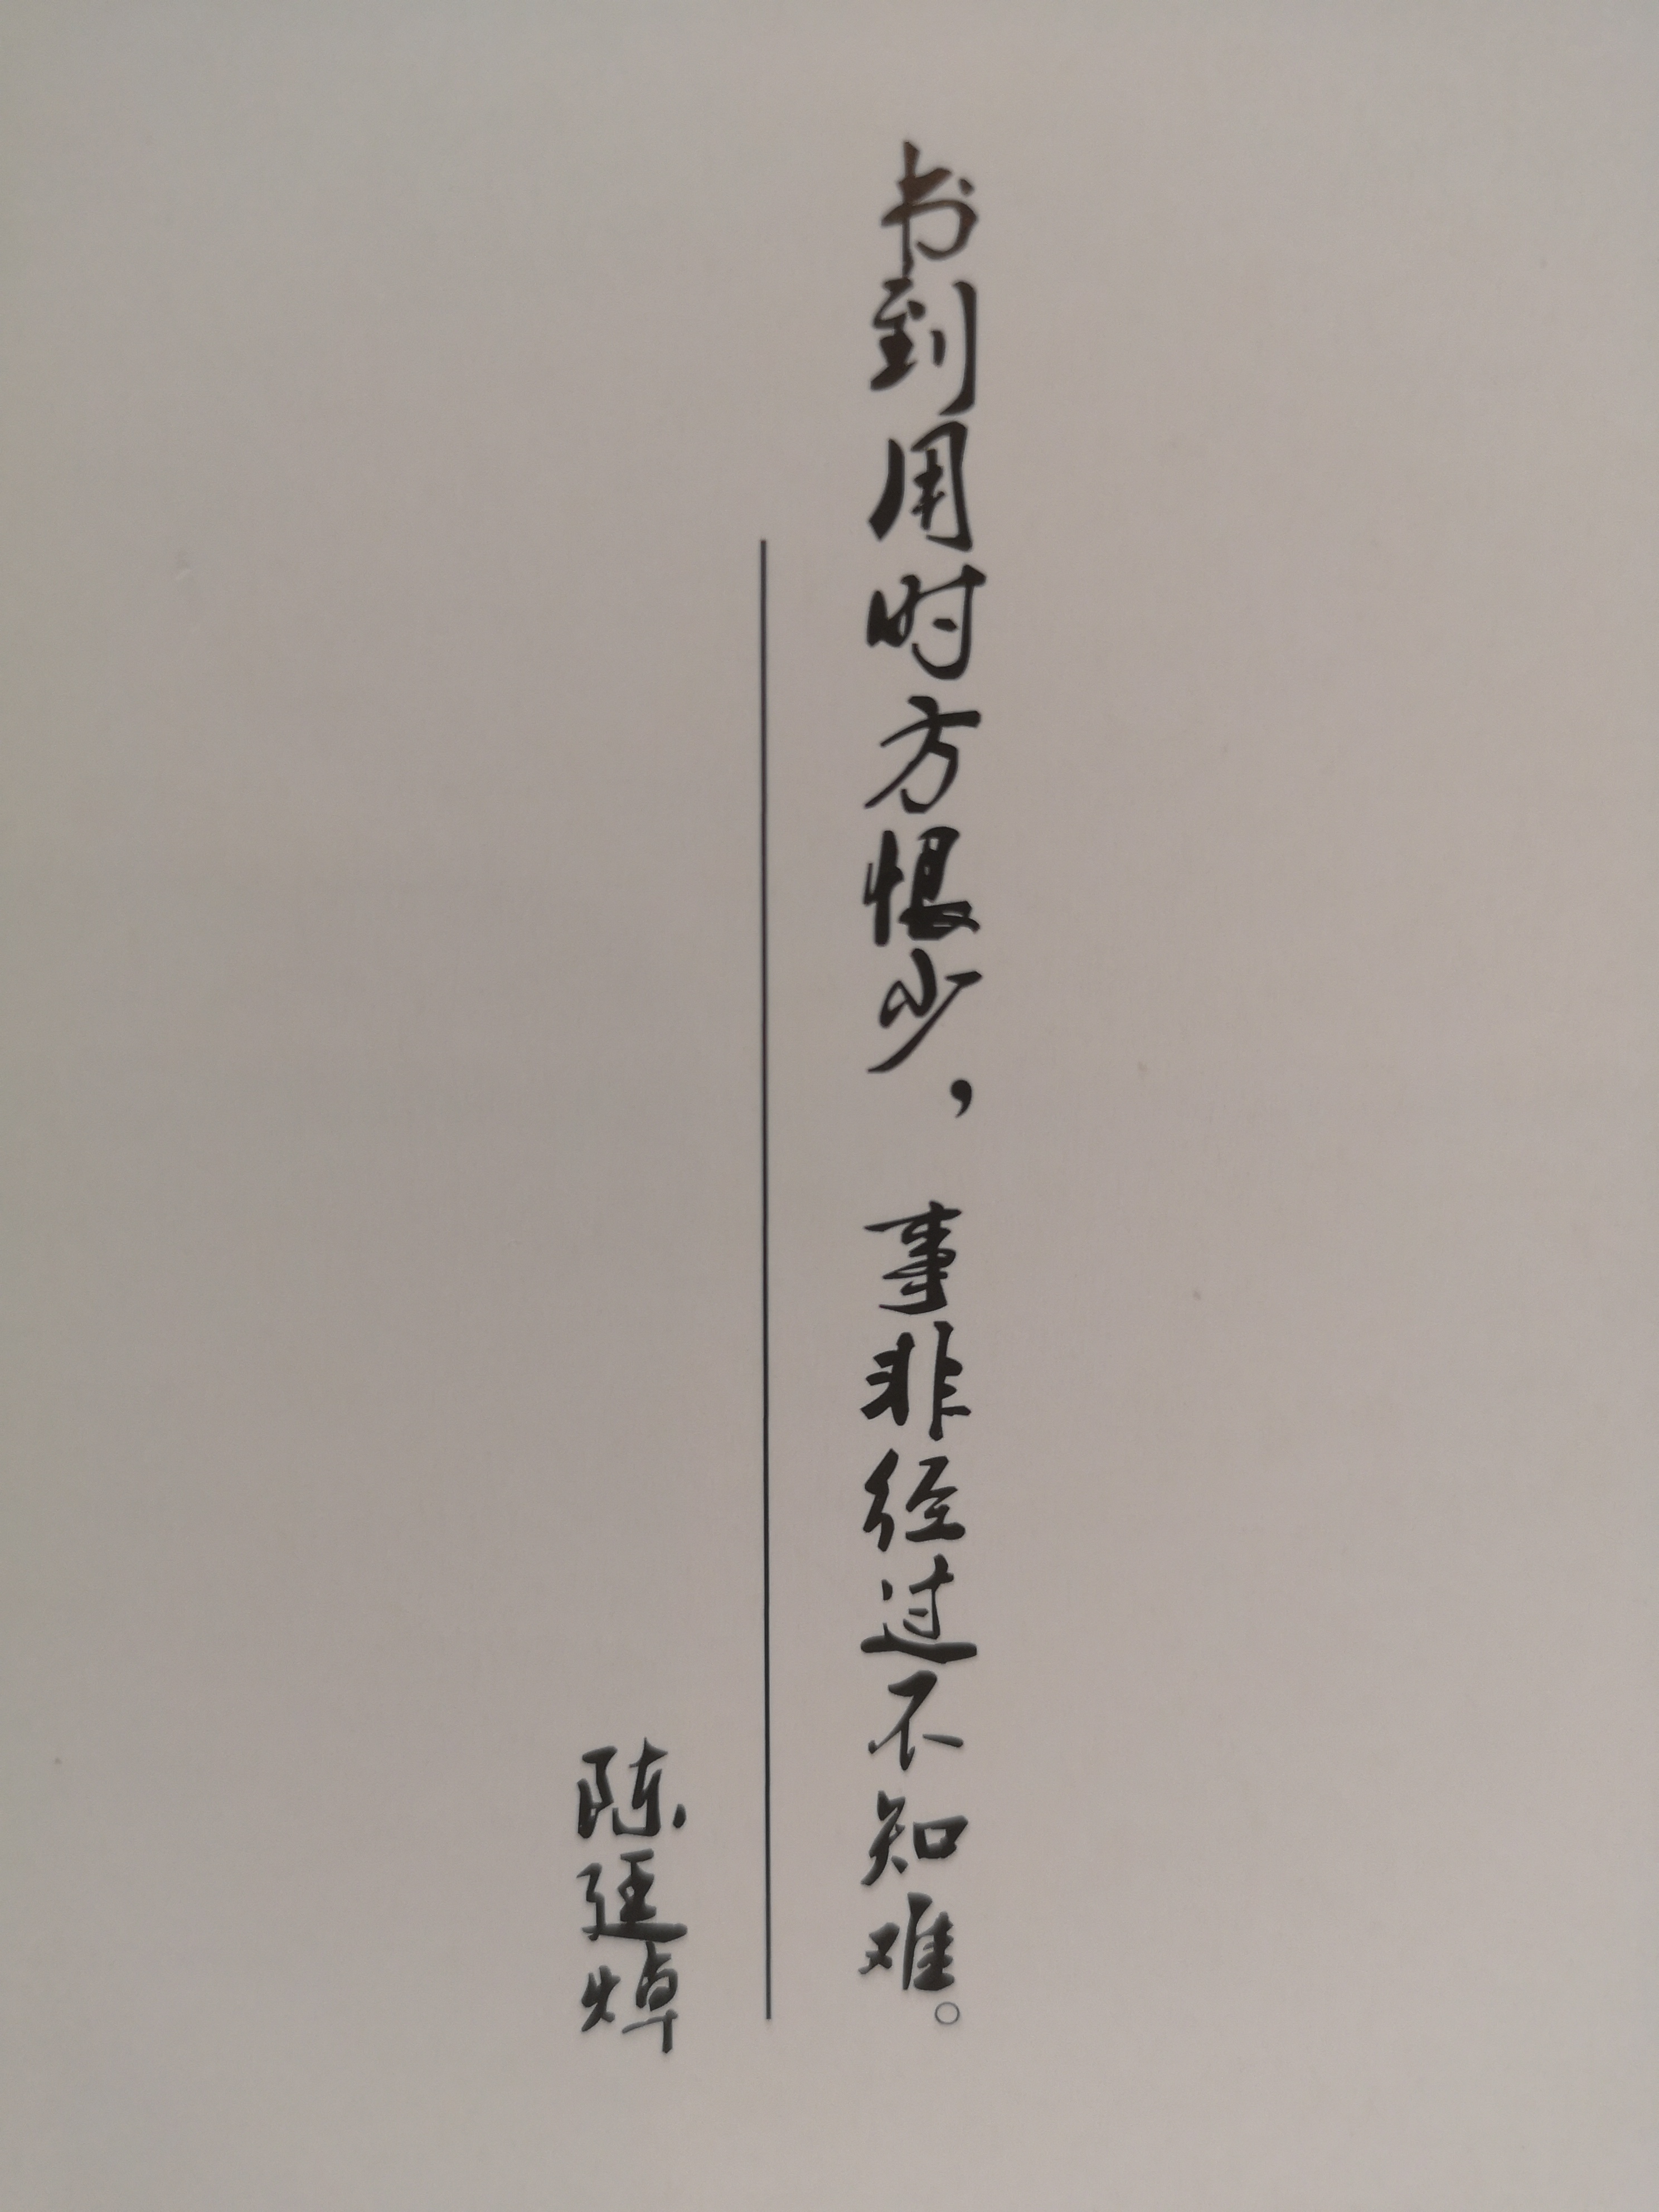 书到用时方恨少，事非经过不知难。
陈廷焯